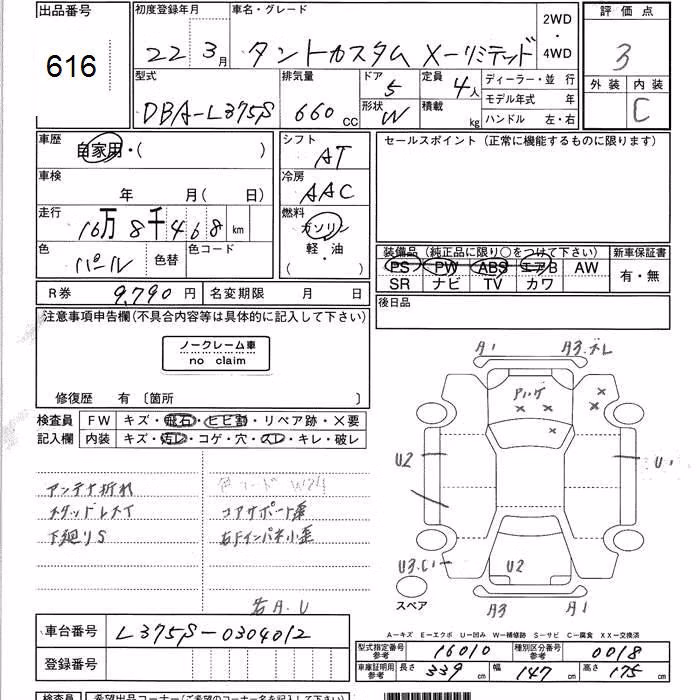 出品番号
616
初度登録年月
22 3月
車名・グレード
タントカスタム X-リミテッド
2WD
・
4WD
評価点
3
外装 内装
C
型式
DBA-L375S
排気量
660 cc
ドア
5
形状
W
定員
4人
積載
kg
ディーラー・並行
モデル年式 年
ハンドル 左・右
車歴
自家用・( )
車検
年 月( 日)
走行
16万8千468 km
色
パール
色替
色コード
シフト
AT
冷房
AAC
燃料
ガソリン
軽・油
( ・ )
セールスポイント (正常に機能するものに限ります)
装備品 (純正品に限り○をつけて下さい)
PS PW ABS エアB AW
SR ナビ TV カワ
新車保証書
有・無
R券 9,790円
名変期限 月 日
後日品
注意事項申告欄(不具合内容等は具体的に記入して下さい)
ノークレーム車
no claim
修復歴 有 〔箇所 〕
検査員
記入欄
FW キズ・飛石・ヒビ割・リペア跡・×要
内装 キズ・汚レ・コゲ・穴・スレ・キレ・破レ
アンテナ折れ
スタッドレスT
下廻りS
色コードW24
コアサポート歪
右Fインパネ小歪
右A.U
A1
A3.ズレ
アハゲ
U2
U1
U3.C1
U2
A3
A1
スペア
A-キズ E-エクボ U-凹み W-補修跡 S-サビ C-腐食 XX-交換済
車台番号 L375S-0304012
登録番号
型式指定番号
参考
16010
種別区分番号
参考
0018
車庫証明用
参考
長さ 339 cm
幅 147 cm
高さ 175 cm
検査員
希望出品コーナー(ご希望のコーナー名を記入